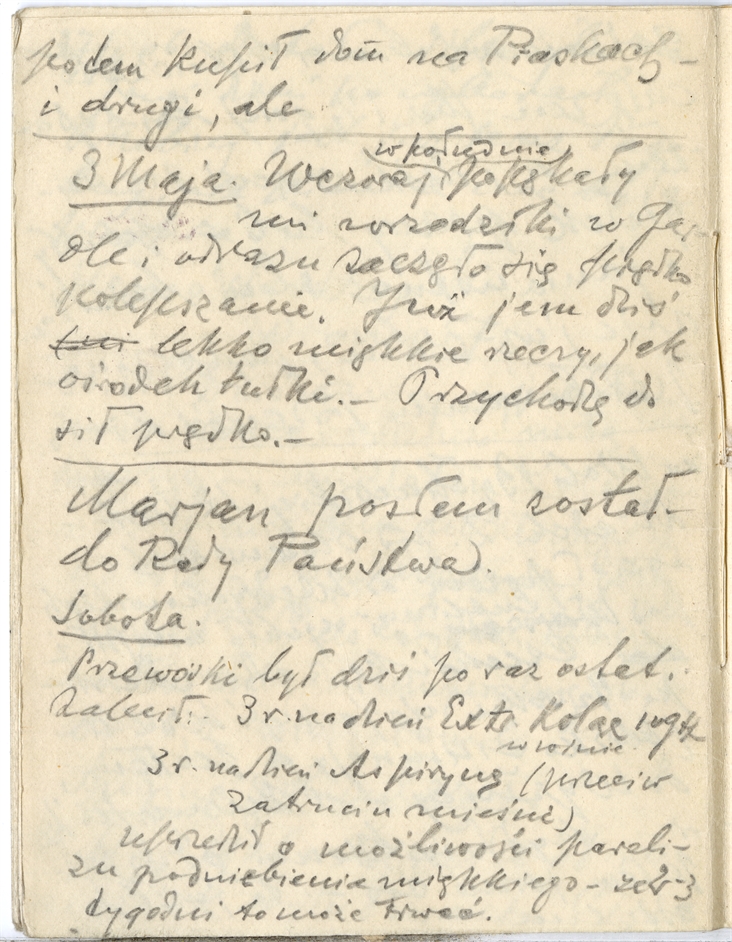 potem kupił dom na Piaskach –
i drugi, ale
w południe
3 Maja. Wczoraj popękały
mi wrzodziki w Gar-
dle i odrazu zaczęło się prędko
polepszanie. Już jem dziś
lekko miękkie rzeczy, jak
ośrodek bułki. – Przychodzę do
sił prędko. –
Marjan posłem został –
do Rady Państwa.
Sobota.
Przewóski był dziś po raz ostat.
Zalecił: 3 r. na dzień Extr. Kolae
3 r. na dzień Aspirynę (przeciw
zatruciu mięśni)
uprzedził o możliwości parali-
zu podniebienia miękkiego – że 2-3
tygodni to może trwać.